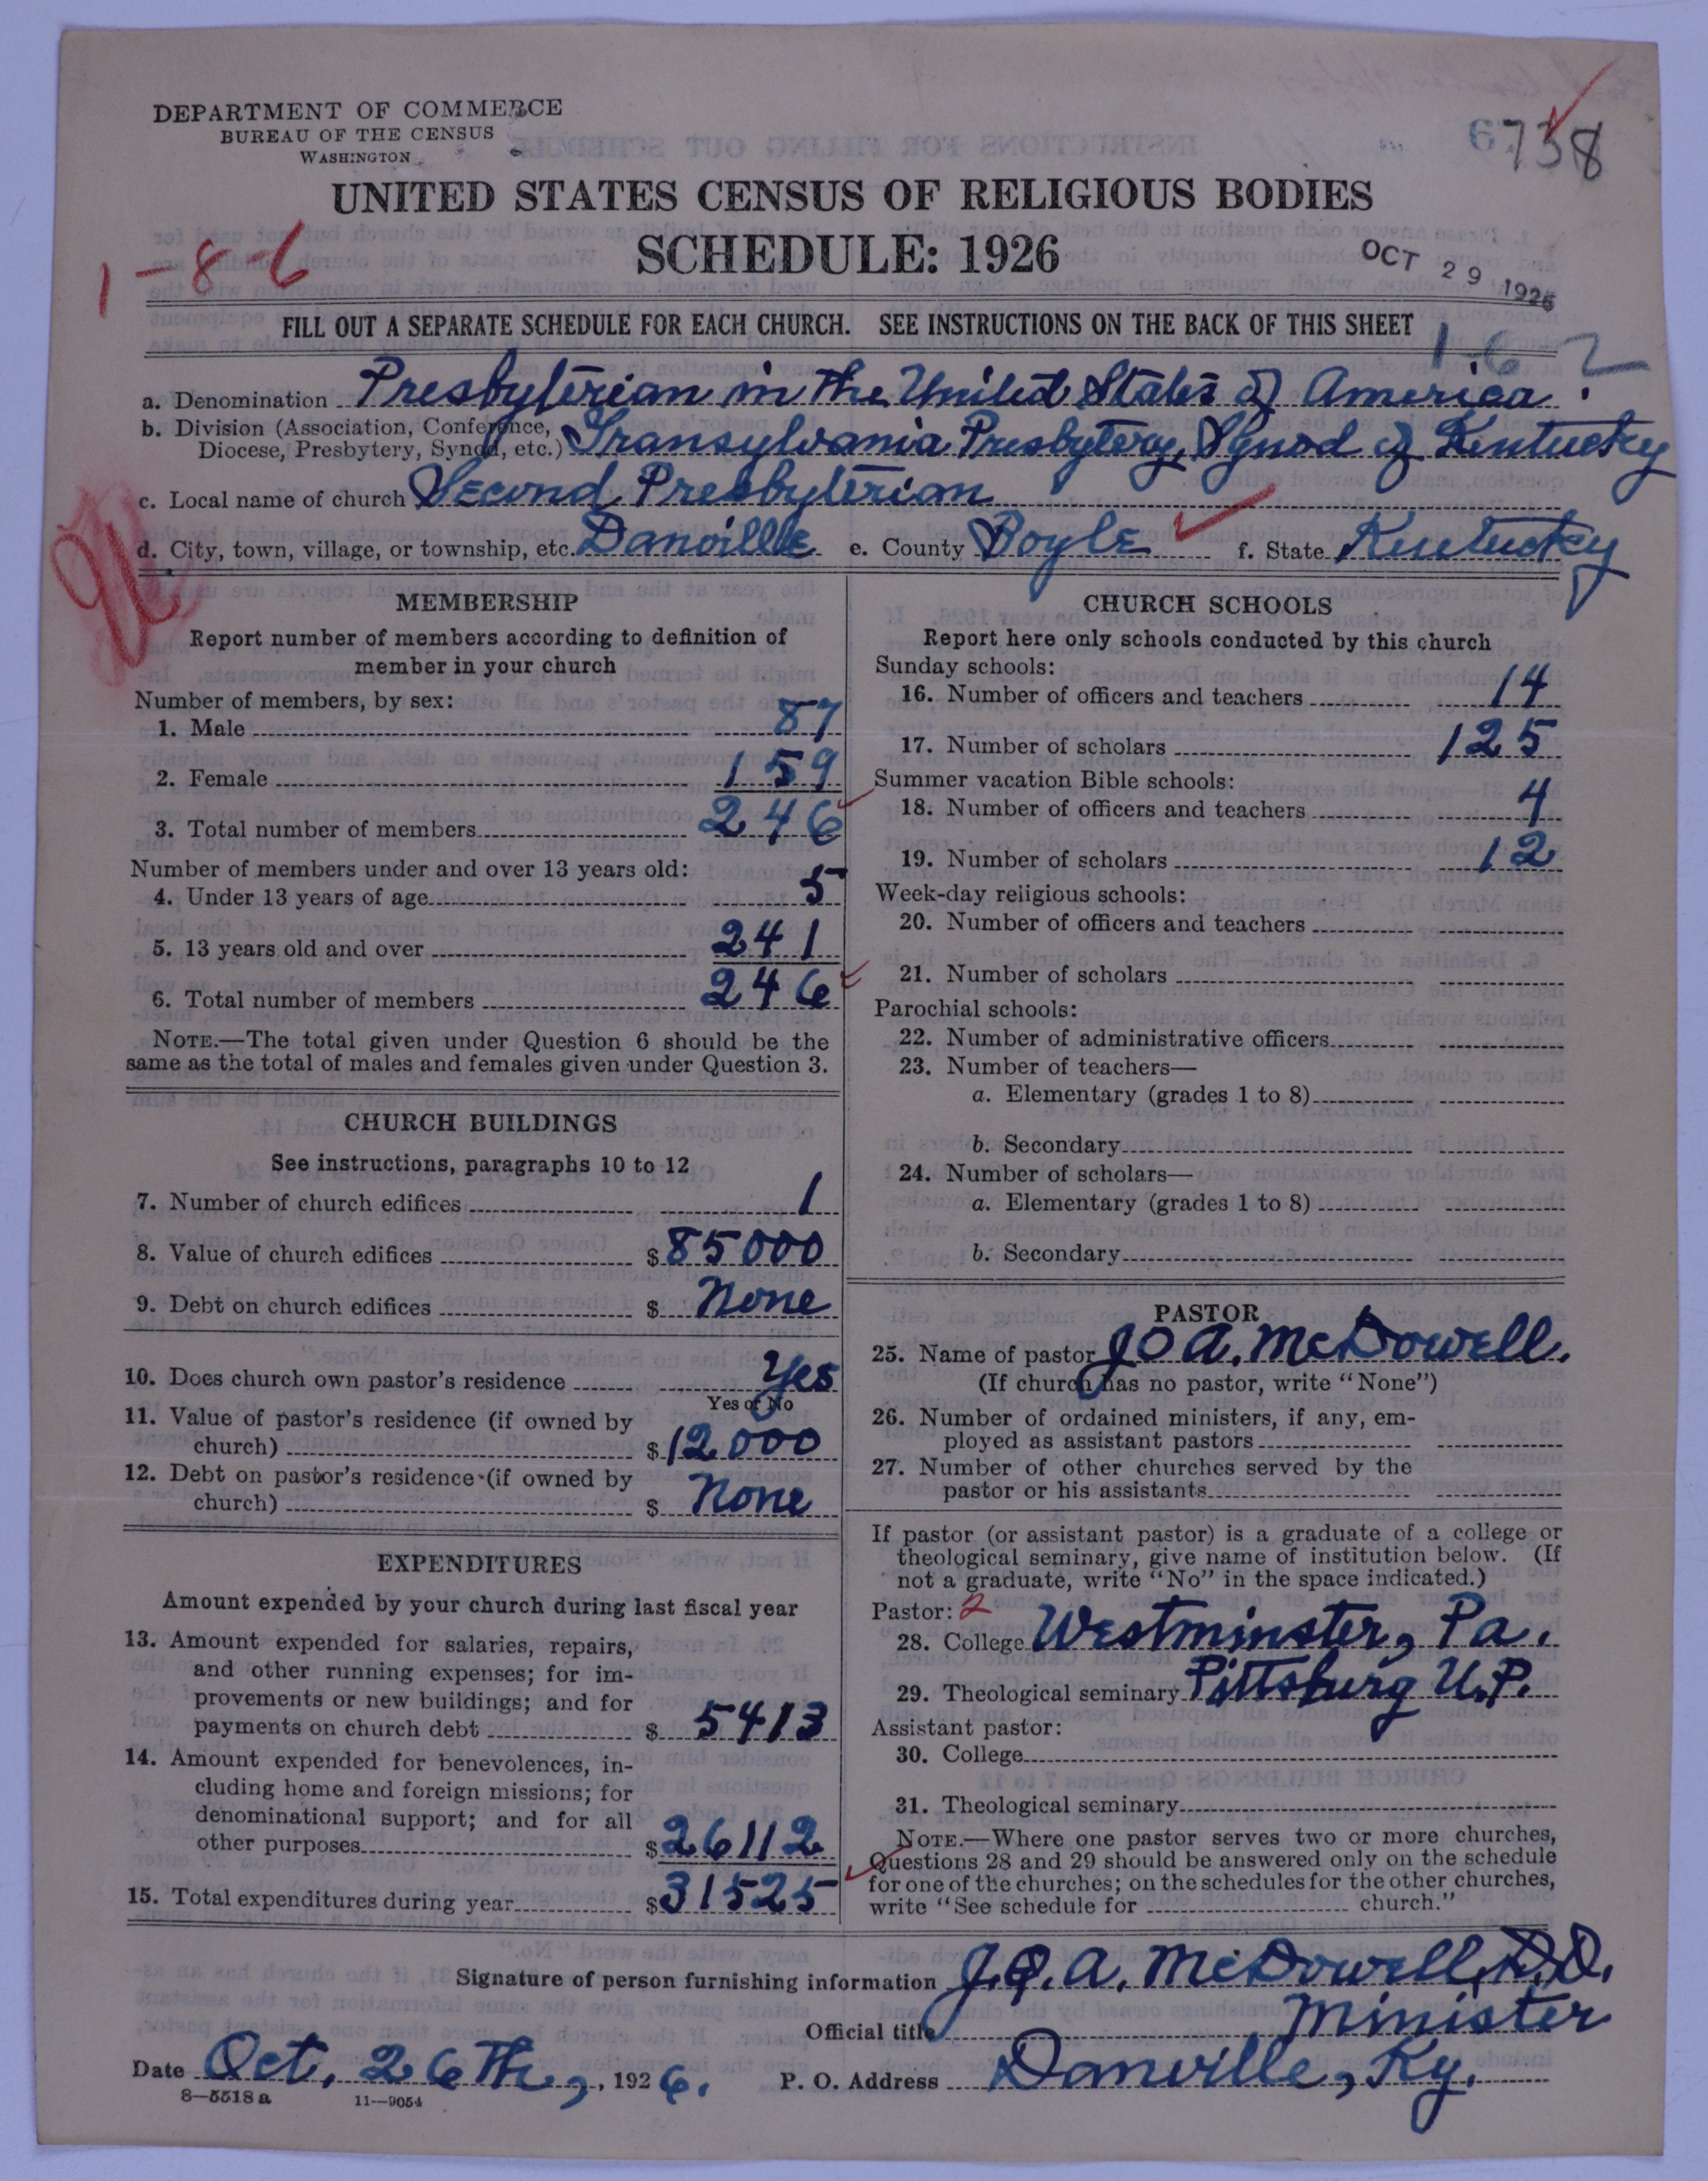 DEPARTMENT OF COMMERCE
BUREAU OF THE CENSUS
WASHINGTON
6738
UNITED STATES CENSUS OF RELIGIOUS BODIES
SCHEDULE: 1926
1-8-6
OCT 29 1926
FILL OUT A SEPARATE SCHEDULE FOR EACH CHURCH. SEE INSTRUCTIONS ON THE BACK OF THIS SHEET
1-6 ?
a. Denomination Presbyterian in the United States of America.
b. Division (Association, Conference, Diocese, Presbytery, Synod, etc.) Transylvania Presbytery, Synod of Kentucky
c. Local name of church Second Presbyterian
d. City, town, village, or township, etc. Danville e. County Boyle f. State Kentucky
MEMBERSHIP
Report number of members according to definition of
member in your church
Number of members, by sex:
1. Male 87
2. Female 159
3. Total number of members 246
Number of members under and over 13 years old:
4. Under 13 years of age 5
5. 13 years old and over 241
6. Total number of members 246
NOTE.—The total given under Question 6 should be the
same as the total of males and females given under Question 3.
CHURCH BUILDINGS
See instructions, paragraphs 10 to 12
7. Number of church edifices 1
8. Value of church edifices $85000
9. Debt on church edifices $ None
10. Does church own pastor's residence Yes
Yes or No
11. Value of pastor's residence (if owned by
church) $12000
12. Debt on pastor's residence (if owned by
church) $ None
EXPENDITURES
Amount expended by your church during last fiscal year
13. Amount expended for salaries, repairs,
and other running expenses; for im-
provements or new buildings; and for
payments on church debt $ 5413
14. Amount expended for benevolences, in-
cluding home and foreign missions; for
denominational support; and for all
other purposes $26112
15. Total expenditures during year $31525
CHURCH SCHOOLS
Report here only schools conducted by this church
Sunday schools:
16. Number of officers and teachers 14
17. Number of scholars 125
Summer vacation Bible schools:
18. Number of officers and teachers 4
19. Number of scholars 12
Week-day religious schools:
20. Number of officers and teachers
21. Number of scholars
Parochial schools:
22. Number of administrative officers
23. Number of teachers—
a. Elementary (grades 1 to 8)
b. Secondary
24. Number of scholars—
a. Elementary (grades 1 to 8)
b. Secondary
PASTOR
25. Name of pastor J Q A. McDowell.
(If church has no pastor, write "None")
26. Number of ordained ministers, if any, em-
ployed as assistant pastors
27. Number of other churches served by the
pastor or his assistants
If pastor (or assistant pastor) is a graduate of a college or
theological seminary, give name of institution below. (If
not a graduate, write "No" in the space indicated.)
Pastor: 2
28. College Westminster, Pa.
29. Theological seminary Pittsburg U.P.
Assistant pastor:
30. College
31. Theological seminary
NOTE.—Where one pastor serves two or more churches,
Questions 28 and 29 should be answered only on the schedule
for one of the churches; on the schedules for the other churches,
write "See schedule for church."
Signature of person furnishing information J. Q. A. McDowell, D.D.
Official title Minister
Date Oct. 26th, 1926. P. O. Address Danville, Ky.
8—5518 a 11—9054